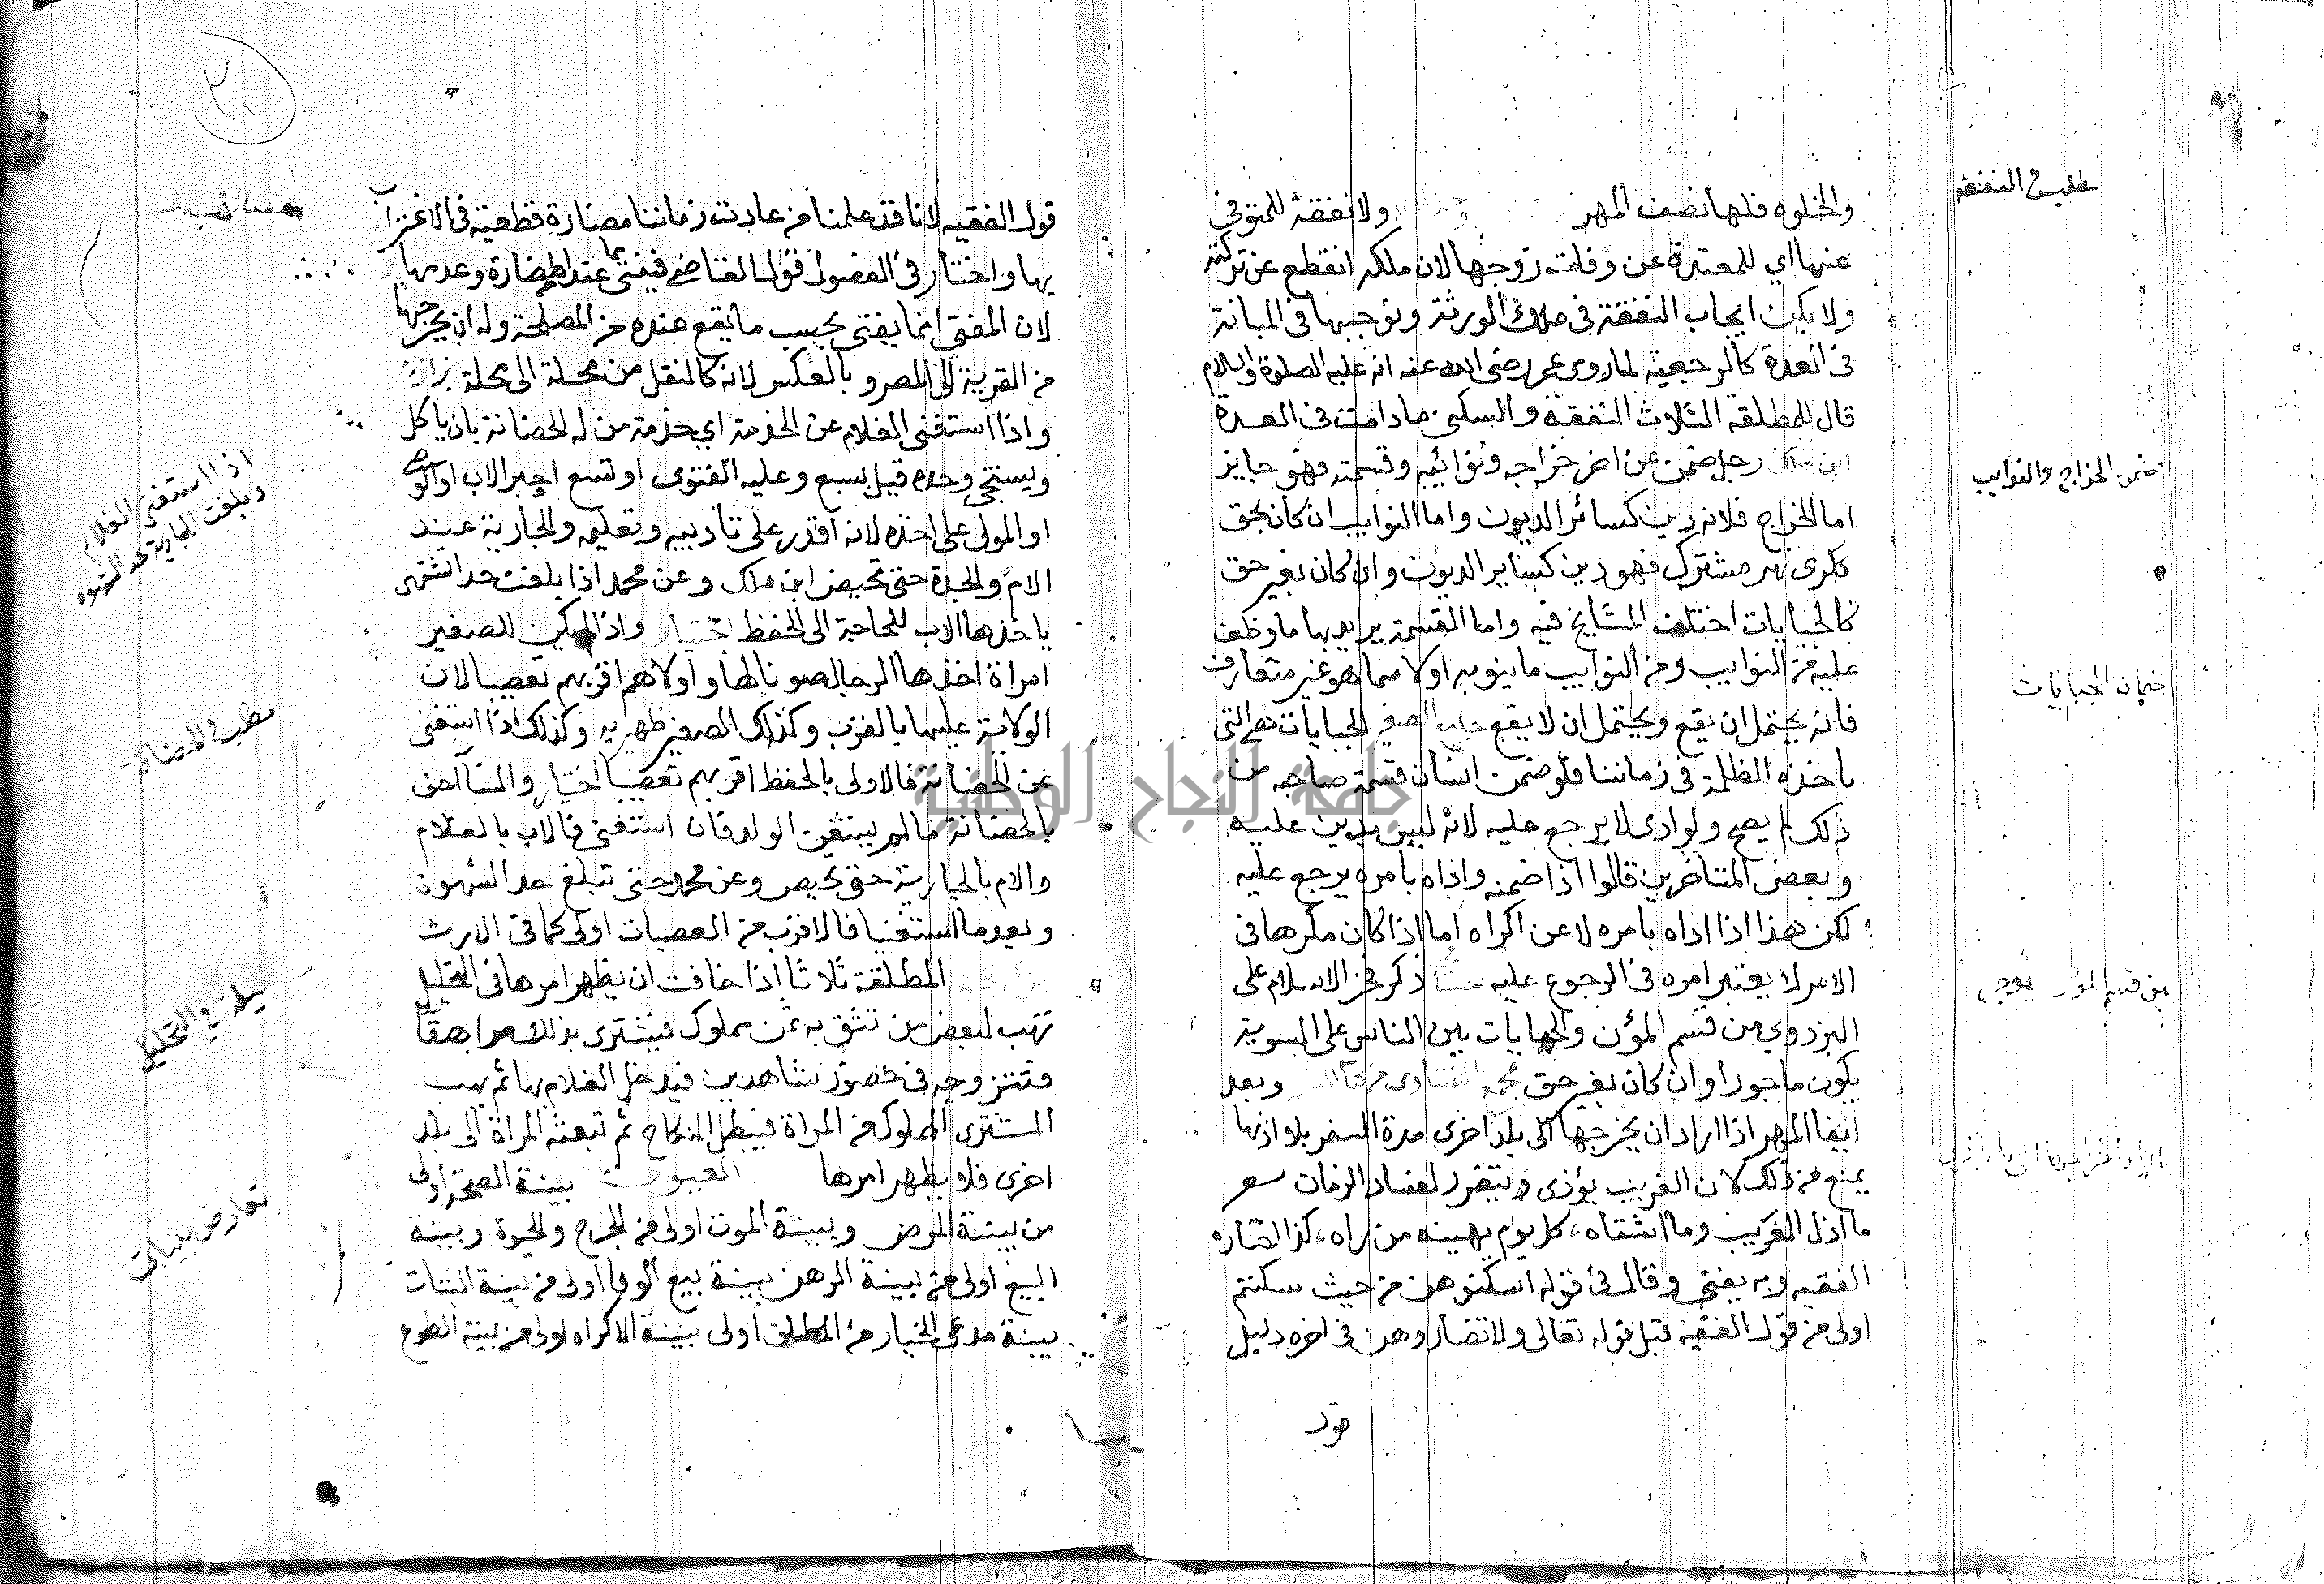 مطلب في النفقة
والخلوه فلها نصف المهر ولا نفقة للمتوفي
عنها اي للمعتدة عن وفات زوجها لان ملكه انقطع عن تركته
ولا يمكن ايجاب النفقة في ملك الورثة ونوجبها في المبانة
في العدة كالرجعية لما روى عمر رضى الله عنه انه عليه الصلوة والسلام
قال للمطلقة الثلاث النفقة والسكنى مادامت في العدة
ابن ملك رجل ضمن عن اخر خراجه ونوائبه وقسمته فهو جايز
ضمن الخراج والنوايب
اما الخراج فلانه دين كسائر الديون واما النوايب ان كان بحق
ككرى نهر مشترك فهو دين كساير الديون وان كان بغير حق
كالجبايات اختلف المشايخ فيه واما القسمة يريد بها ما وظف
عليه من النوايب ومن النوايب ما ينوبه اولا سما هو غير متعارف
ضمان الجبايات
فانه يحتمل ان يقع ويحتمل ان لا يقع الجبايات هي التى
ياخذه الظلمة في زماننا فلو ضمن انسان قسمة صاحبه من
ذلك لم يصح ولو ادى لا يرجع عليه لانه ليس بدين عليه
وبعض المتاخرين قالوا اذا ضمنه واداه بامره يرجع عليه
لكن هذا اذا اداه بامره لا عن اكراه اما اذا كان مكرها في
الامر لا يعتبر امره في الرجوع عليه ذكر فخر الاسلام على
من قسم المؤن يوجر
البزدوي من قسم المؤن والجبايات بين الناس على السوية
يكون ماجورا وان كان بغير حق وبعد
ايفا المهر اذا اراد ان يخرجها الى بلد اخرى مدة السفر بلا اذنها
يمنع من ذلك لان الغريب يؤذى ويتضرر لفساد الزمان شعر
ما اذل الغريب وما اشقاه، كل يوم يهينه من يراه، كذا اختاره
الفقيه وبه يفتى وقال في قوله اسكنوهن من حيث سكنتم
اولى من قول الفقيه قيل قوله تعالى ولا تضاروهن في اخره دليل
قول
قول الفقيه لانا قد علمنا من عادت زماننا مضارة قطعية في الاغتراب
بها واختار في الفصول قول القاضي فيفتى بما عندهم من المضارة وعدمها
لان المفتى انما يفتى بحسب ما يقع عنده من المصلحة وله ان يخرجها
من القرية الى المصر وبالعكس لانه كالنقل من محلة الى محلة
واذا استغنى الغلام عن الخدمة اي خدمة من له الحضانة بان ياكل
ويستنجى وحده قيل بسبع وعليه الفتوى او تسع اجبر الاب او الوصى
اذا استغنى الغلام
وبلغت الجارية حد الشهوة
او المولى على اخذه لانه اقدر على تاديبه وتعليمه والجارية عند
الام والجدة حتى تحيض ابن ملك وعن محمد اذا بلغت حدا تشتهى
ياخذها الاب للحاجة الى الحفظ اختيار واذا لم يكن للصغير
امراة اخذها الرجال صونا لها واولاهم اقربهم تعصيبا لان
الولاية عليها بالقرب وكذلك الصغير ظهيريه وكذلك اذا استغنى
مطلب في الحضانة
عن الحضانة فالاولى بالحفظ اقربهم تعصيبا اختيار والنسا احق
بالحضانة مالم يستغن الولد فان استغنى فالاب بالغلام
والام بالجارية حتى تحيض وعن محمد حتى تبلغ حد الشهوة
وبعد ما استغنيا فالاقرب من العصبات اولى كما في الارث
المطلقة ثلاثا اذا خافت ان يظهر امرها في التحليل
حيلة في التحليل
تهب لبعض من تثق به ثمن مملوك فيشترى بذلك مراهقا
فتتزوجه في حضور شاهدين فيدخل الغلام بها ثم يهب
المشترى المملوك من المراة فيبطل النكاح ثم تبعثه المراة الى بلد
اخرى فلا يظهر امرها العيون بينة الصحة اولى
تعارض بينات
من بينة المرض وبينة الموت اولى من الجرح والحيوة وبينة
البيع اولى من بينة الرهن بينة بيع الوفا اولى من بينة البتات
بينة مدعى الخيار من المطلق اولى بينة الاكراه اولى من بينة الطوع
جامعة النجاح الوطنية